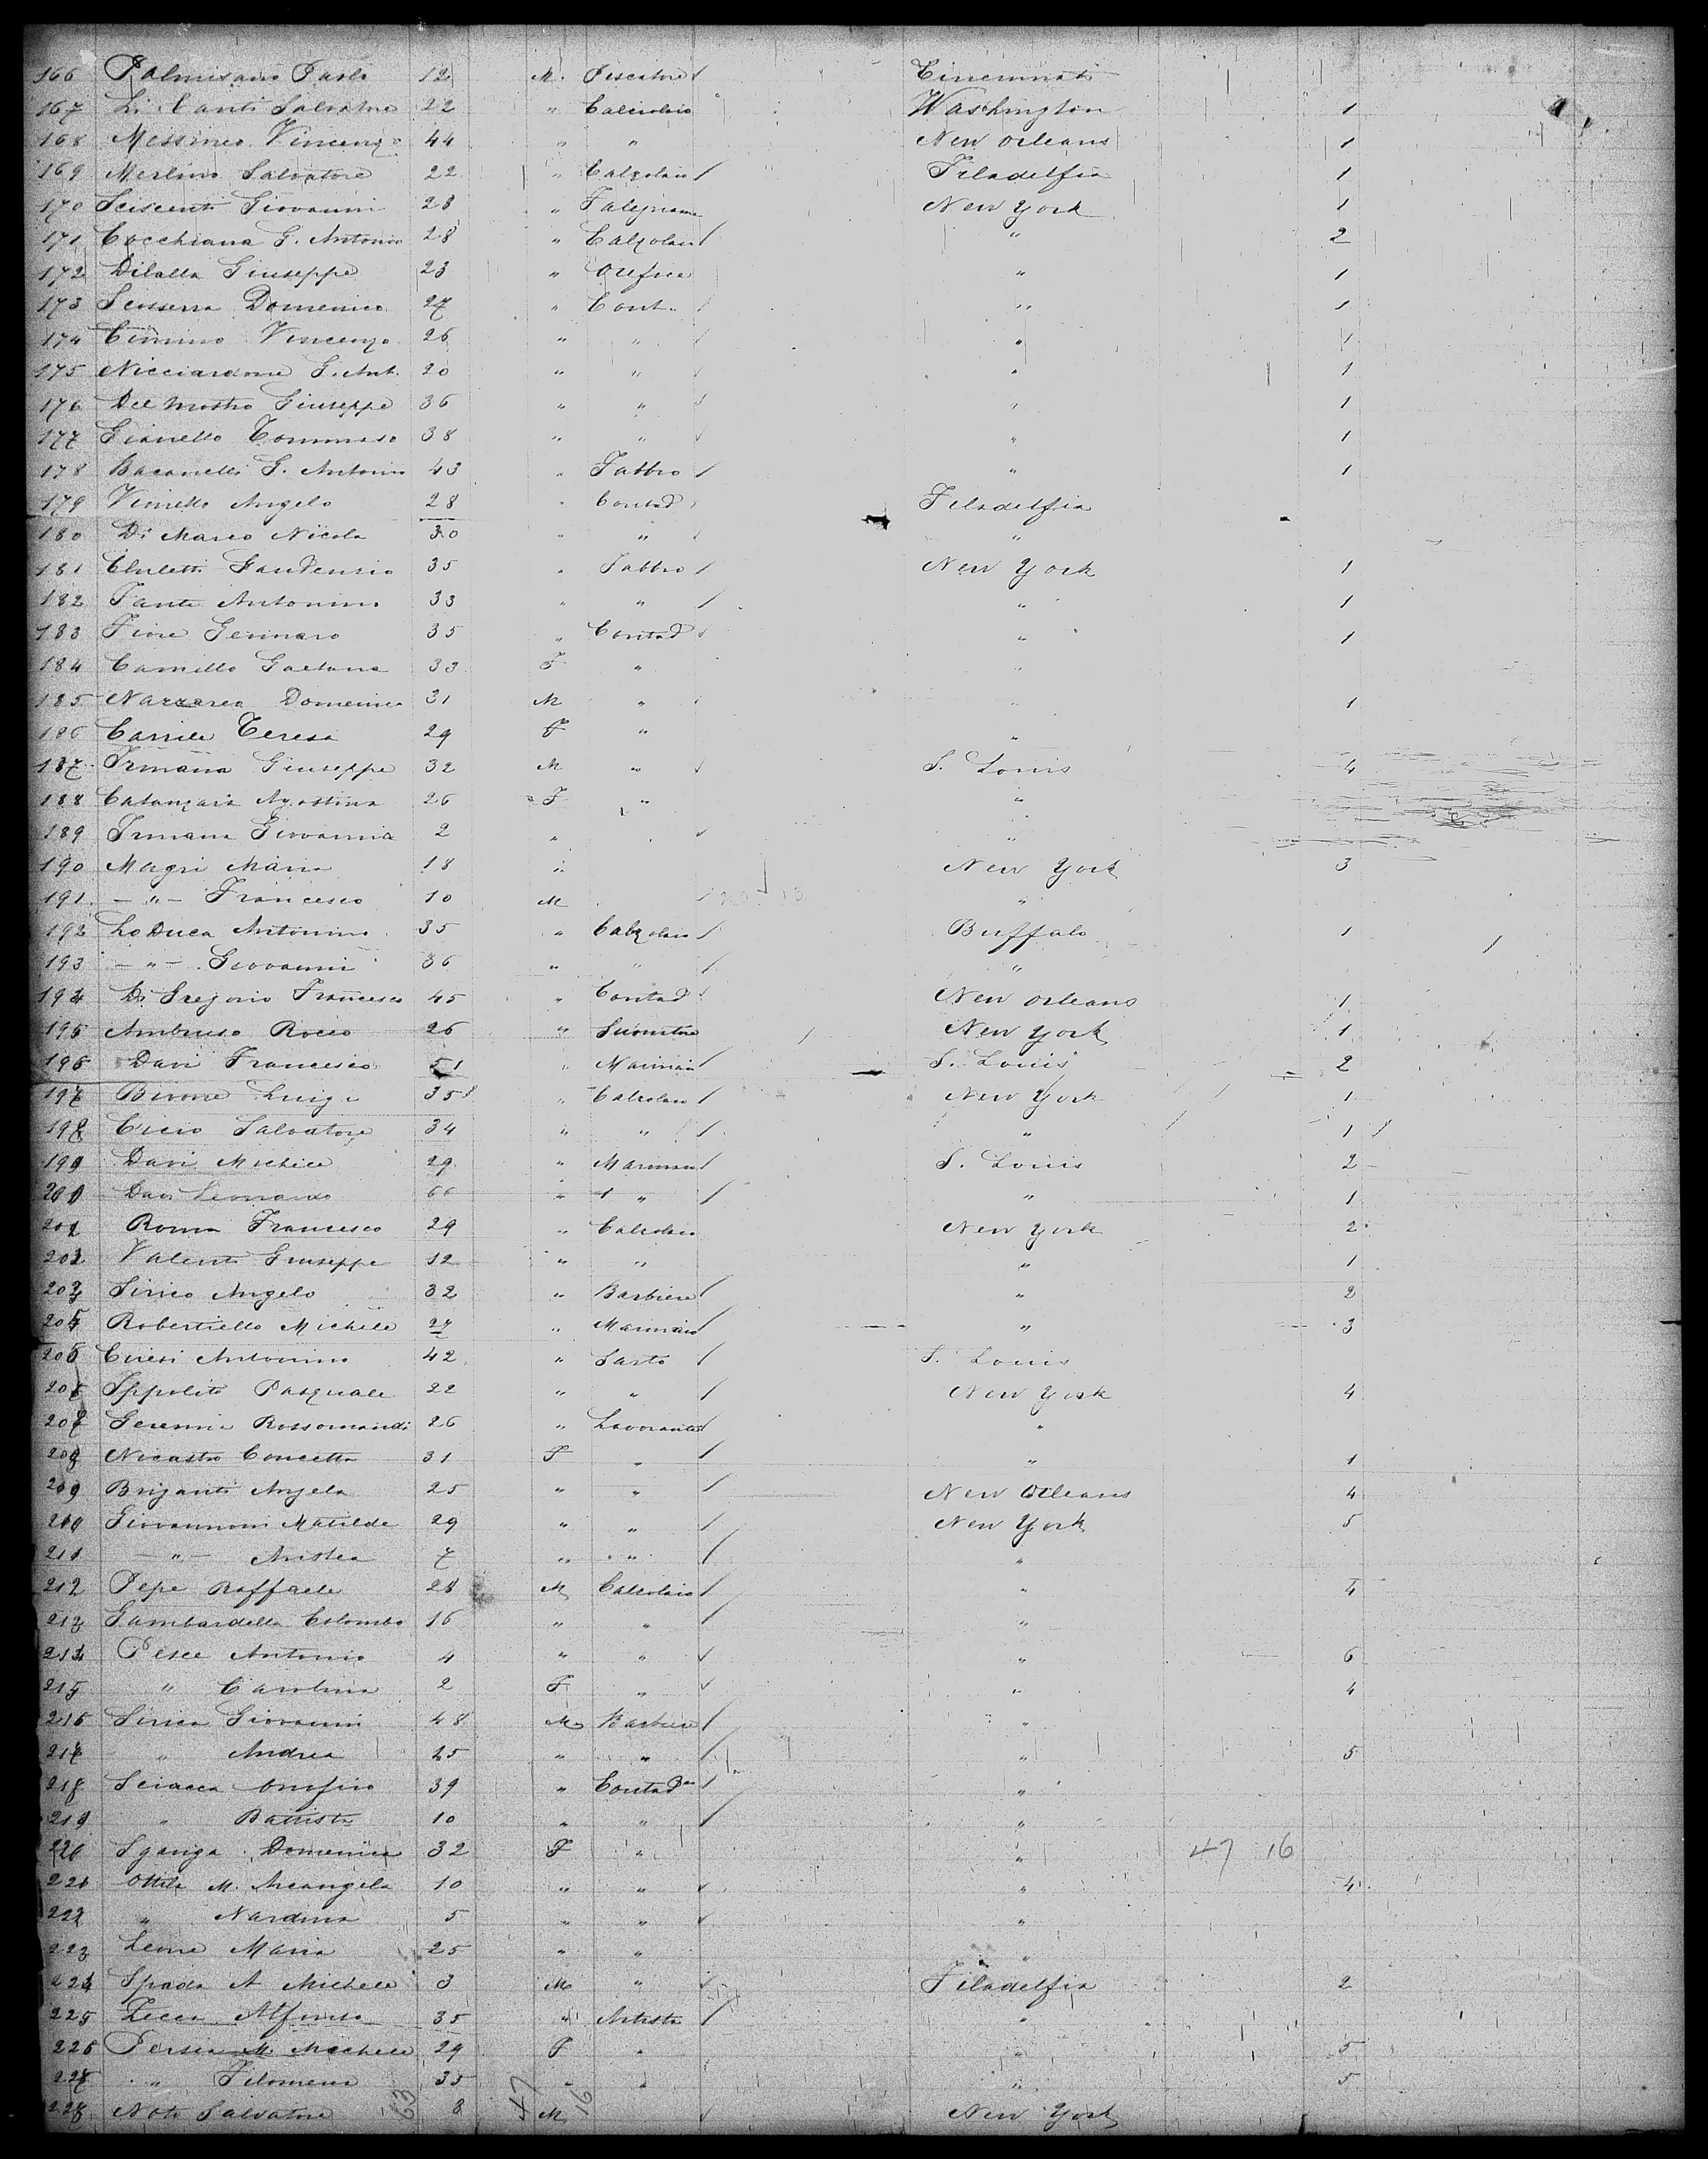 166 Palmisano Paolo 12 M. Pescatore Cincinnati
167 Li Canti Salvatore 22 " Calzolaio Washington 1
168 Messineo Vincenzo 44 " " New Orleans 1
169 Merlino Salvatore 22 " Calzolaio Filadelfia 1
170 Giovanni 28 " Falegname New York 1
171 Cocchiana G. Antonio 28 " Calzolaio " 2
172 Dilalla Giuseppe 23 " Orefice " 1
173 Domenico 27 " Cont. " 1
174 Cimino Vincenzo 26 " " " 1
175 Nicciardone G. Ant. 20 " " " 1
176 Del Mostro Giuseppe 36 " " " 1
177 Gianello Tommaso 38 " " " 1
178 G. Antonio 43 " Fabbro " 1
179 Angelo 28 " Contad Filadelfia
180 Di Marco Nicola 30 " " "
181 Gaudenzio 35 " Fabbro New York 1
182 Antonino 33 " " " 1
183 Fiore Gennaro 35 " Contad " 1
184 Camillo Gaetana 33 F " "
185 Nazzareo Domenico 31 M " " 1
186 Teresa 29 F " "
187 Irmana Giuseppe 32 M " S. Louis 4
188 Catanzaro Agostina 26 F " "
189 Irmana Giovannia 2 " "
190 Magri Maria 18 " New York 3
191 - " - Francesco 10 M "
192 Lo Duca Antonino 35 " Calzolaio Buffalo 1
193 - " - Giovanni 36 " " "
194 Di Gregorio Francesco 45 " Contad New Orleans 1
195 Ambruso Rocco 26 " Suonatore New York 1
196 Davi Francesco 51 " Marinaio S. Louis 2
197 Birone Luigi 35 " Calzolaio New York 1
198 Cricio Salvatore 34 " " " 1
199 Davi Michele 29 " Marinaio S. Louis 2
200 Davi Leonardo 66 " " " 1
201 Roma Francesco 29 " Calzolaio New York 2
202 Valenti Giuseppe 12 " " " 1
203 Sirico Angelo 32 " Barbiere " 2
204 Robertiello Michele 27 " Marinaio " 3
205 Antonino 42 " Sarto S. Louis
206 Ippolito Pasquale 22 " " New York 4
207 Geremia Rossomandi 26 " Lavorante "
208 Nicastro Concetta 31 F " " 1
209 Briganti Angela 25 " " New Orleans 4
210 Giovannoni Matilde 29 " " New York 5
211 - " - Aristea 7 " " "
212 Pepe Raffaele 28 M Calzolaio " 4
213 Gambardella Colombo 16 " " "
214 Pesce Antonio 4 " " " 6
215 " Carolina 2 F " " 4
216 Sirica Giovanni 48 M Barbiere "
217 " Andrea 25 " " " 5
218 Sciacca Onofrio 39 " Contad "
219 " Battista 10 " " "
220 Sganga Domenica 32 F " " 47 16
221 M. Arcangela 10 " " " 4
222 " Nardina 5 " " "
223 Leone Maria 25 " " "
224 Spada A Michele 3 M " Filadelfia 2
225 Zecca Alfonso 35 " Artista "
226 Persia M. Michele 29 F " " 5
227 " Filomena 35 " " " 5
228 Noto Salvatore 8 M New York
63 47 16